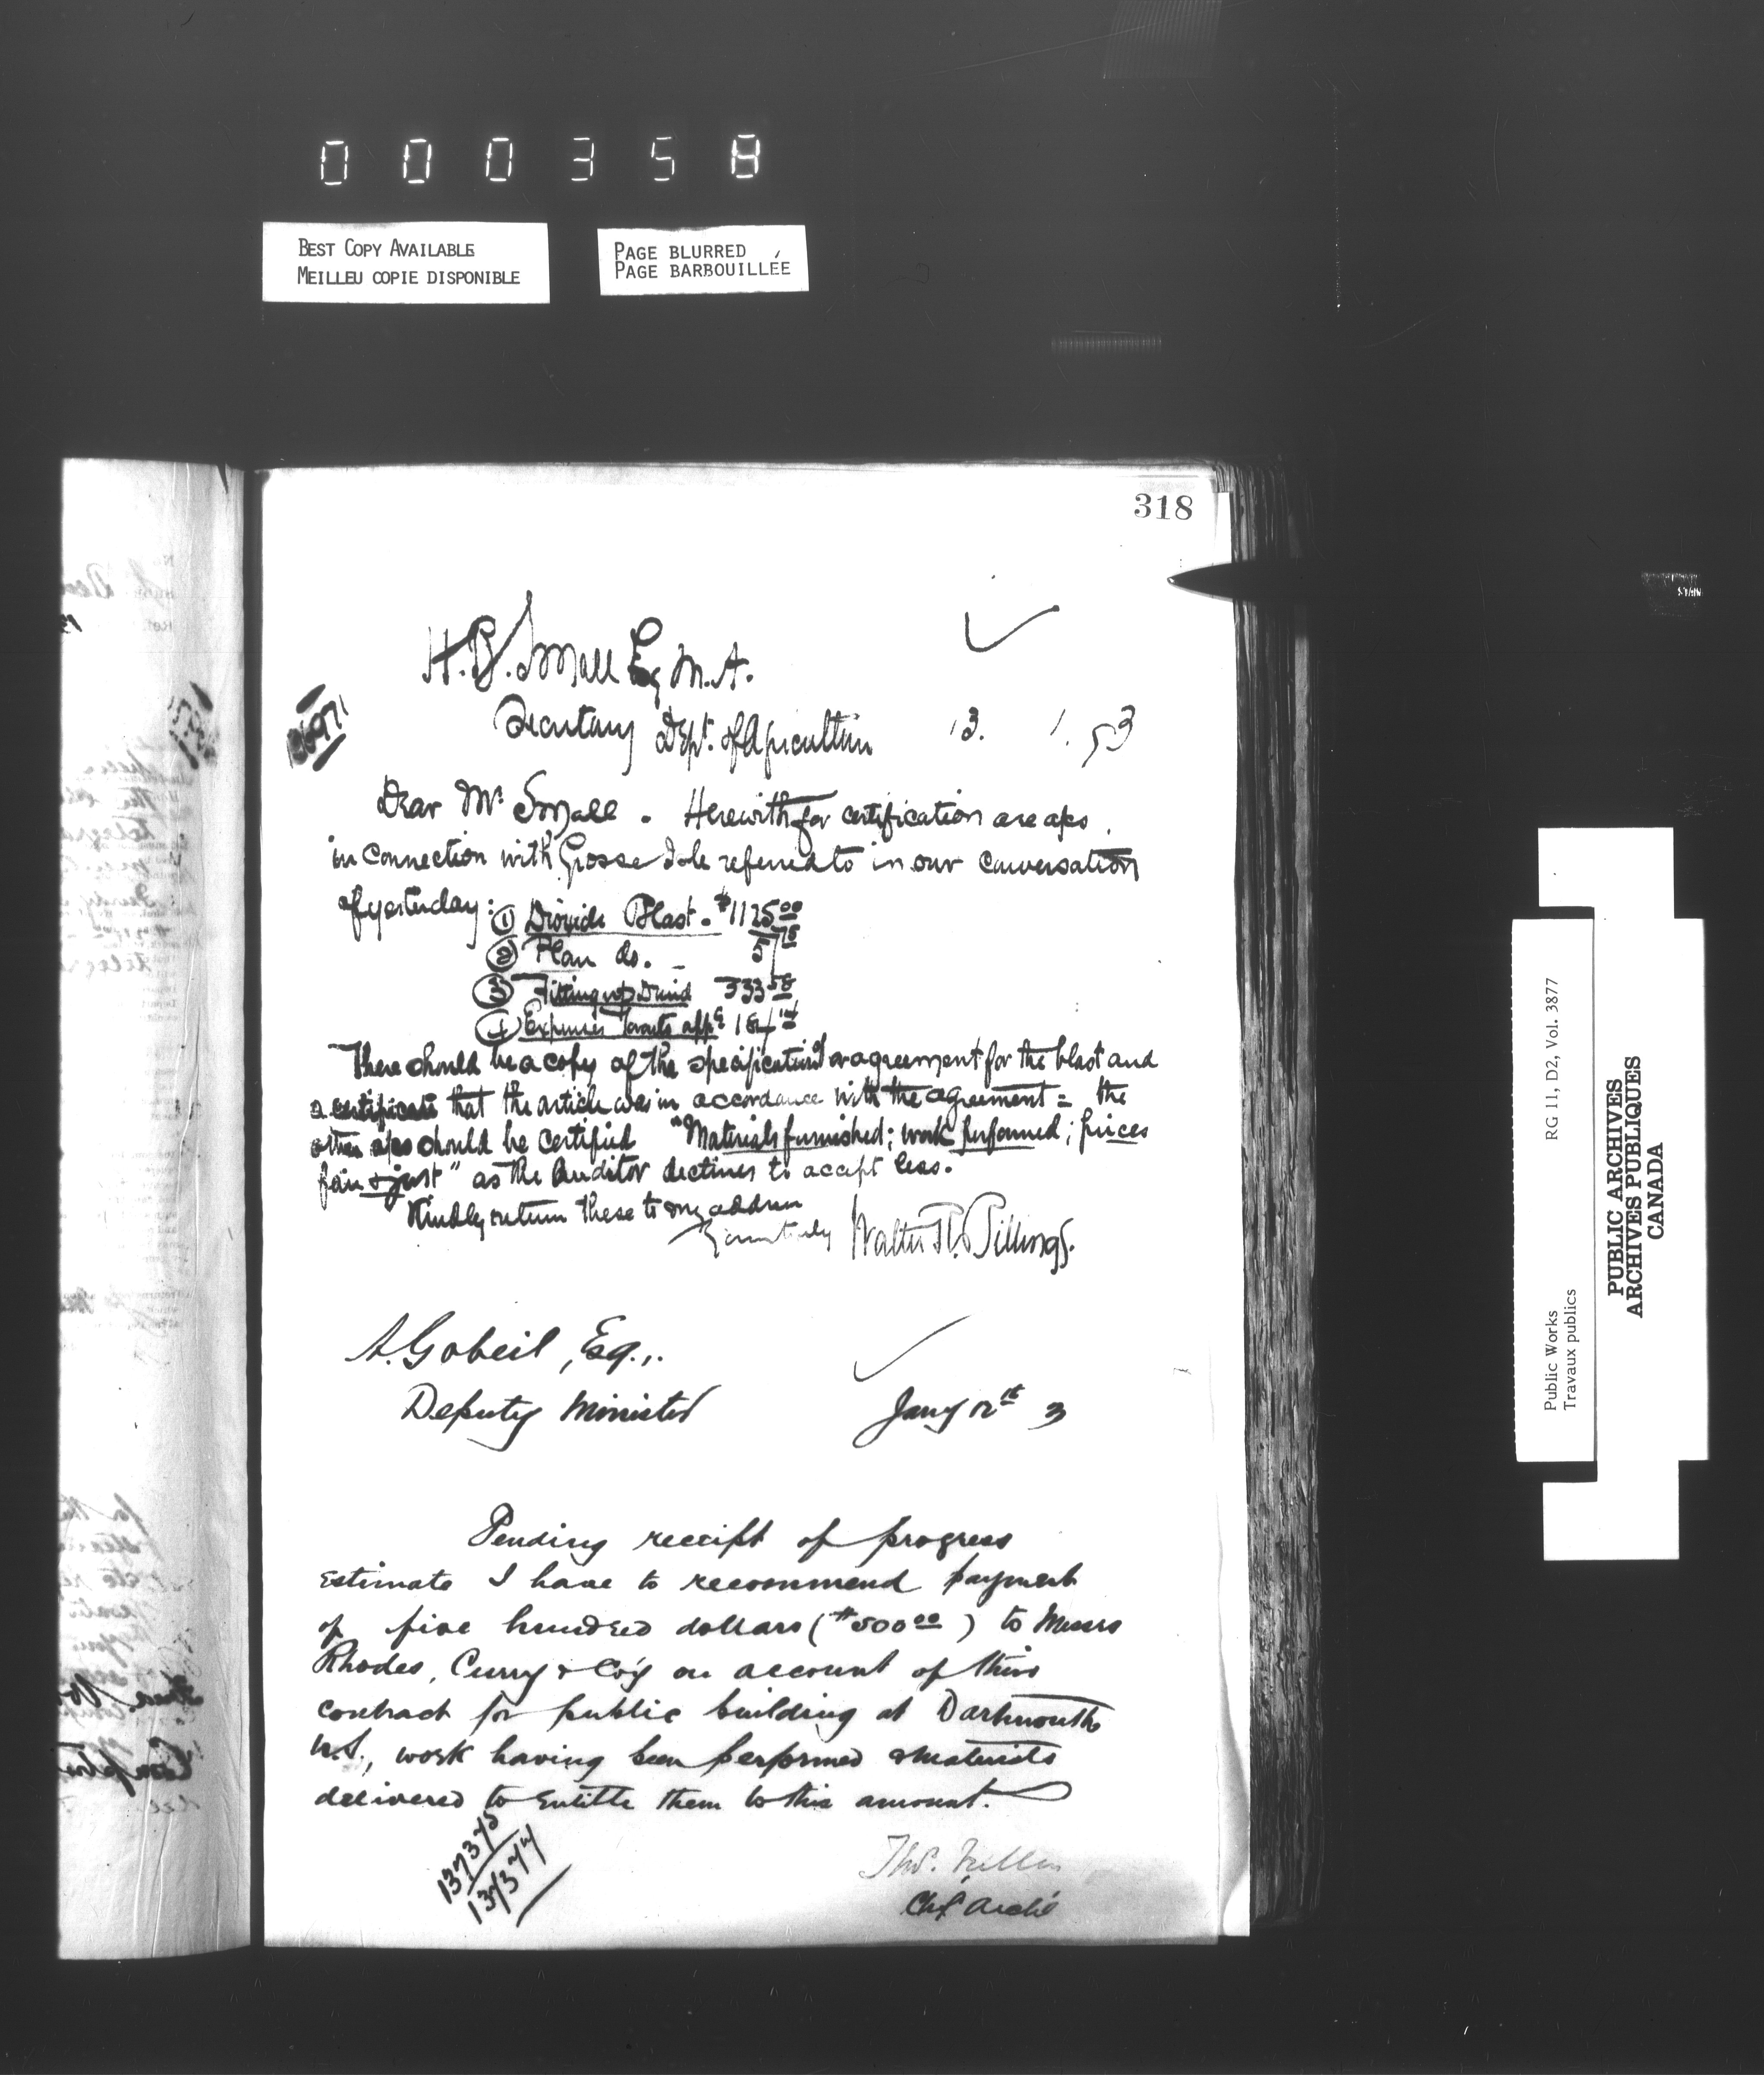 000358
BEST COPY AVAILABLE
MEILLEU COPIE DISPONIBLE
PAGE BLURRED
PAGE BARBOUILLÉE
318
H.B. Small Esq M.A.
Secretary Dept. of Agriculture 13. 1. 93
Dear Mr Small. Herewith for certification are aps
in connection with Grosse Isle referred to in our conversation
of yesterday: ① Dioxide Blast. $1125.00
② Plan do. 5
③ Fitting up Druid 333.58
④ Expenses app 184
There should be a copy of the specification or agreement for the blast and
a certificate that the article was in accordance with the agreement = the
other aps should be certified "Materials furnished; work performed; prices
fair & just" as the Auditor declines to accept less.
Kindly return these to my address
Yours truly Walter R. Billings.
A. Gobeil, Esq.,
Deputy Minister Jany 12th 3
Pending receipt of progress
estimate I have to recommend payment
of five hundred dollars ($500.00) to Messrs
Rhodes, Curry & Co'y on account of their
contract for public building at Dartmouth
N.S., work having been performed & materials
delivered to entitle them to this amount.
137375
137374
Thos. Fuller
Chf Archt
Public Works
Travaux publics
RG 11, D2, Vol. 3877
PUBLIC ARCHIVES
ARCHIVES PUBLIQUES
CANADA